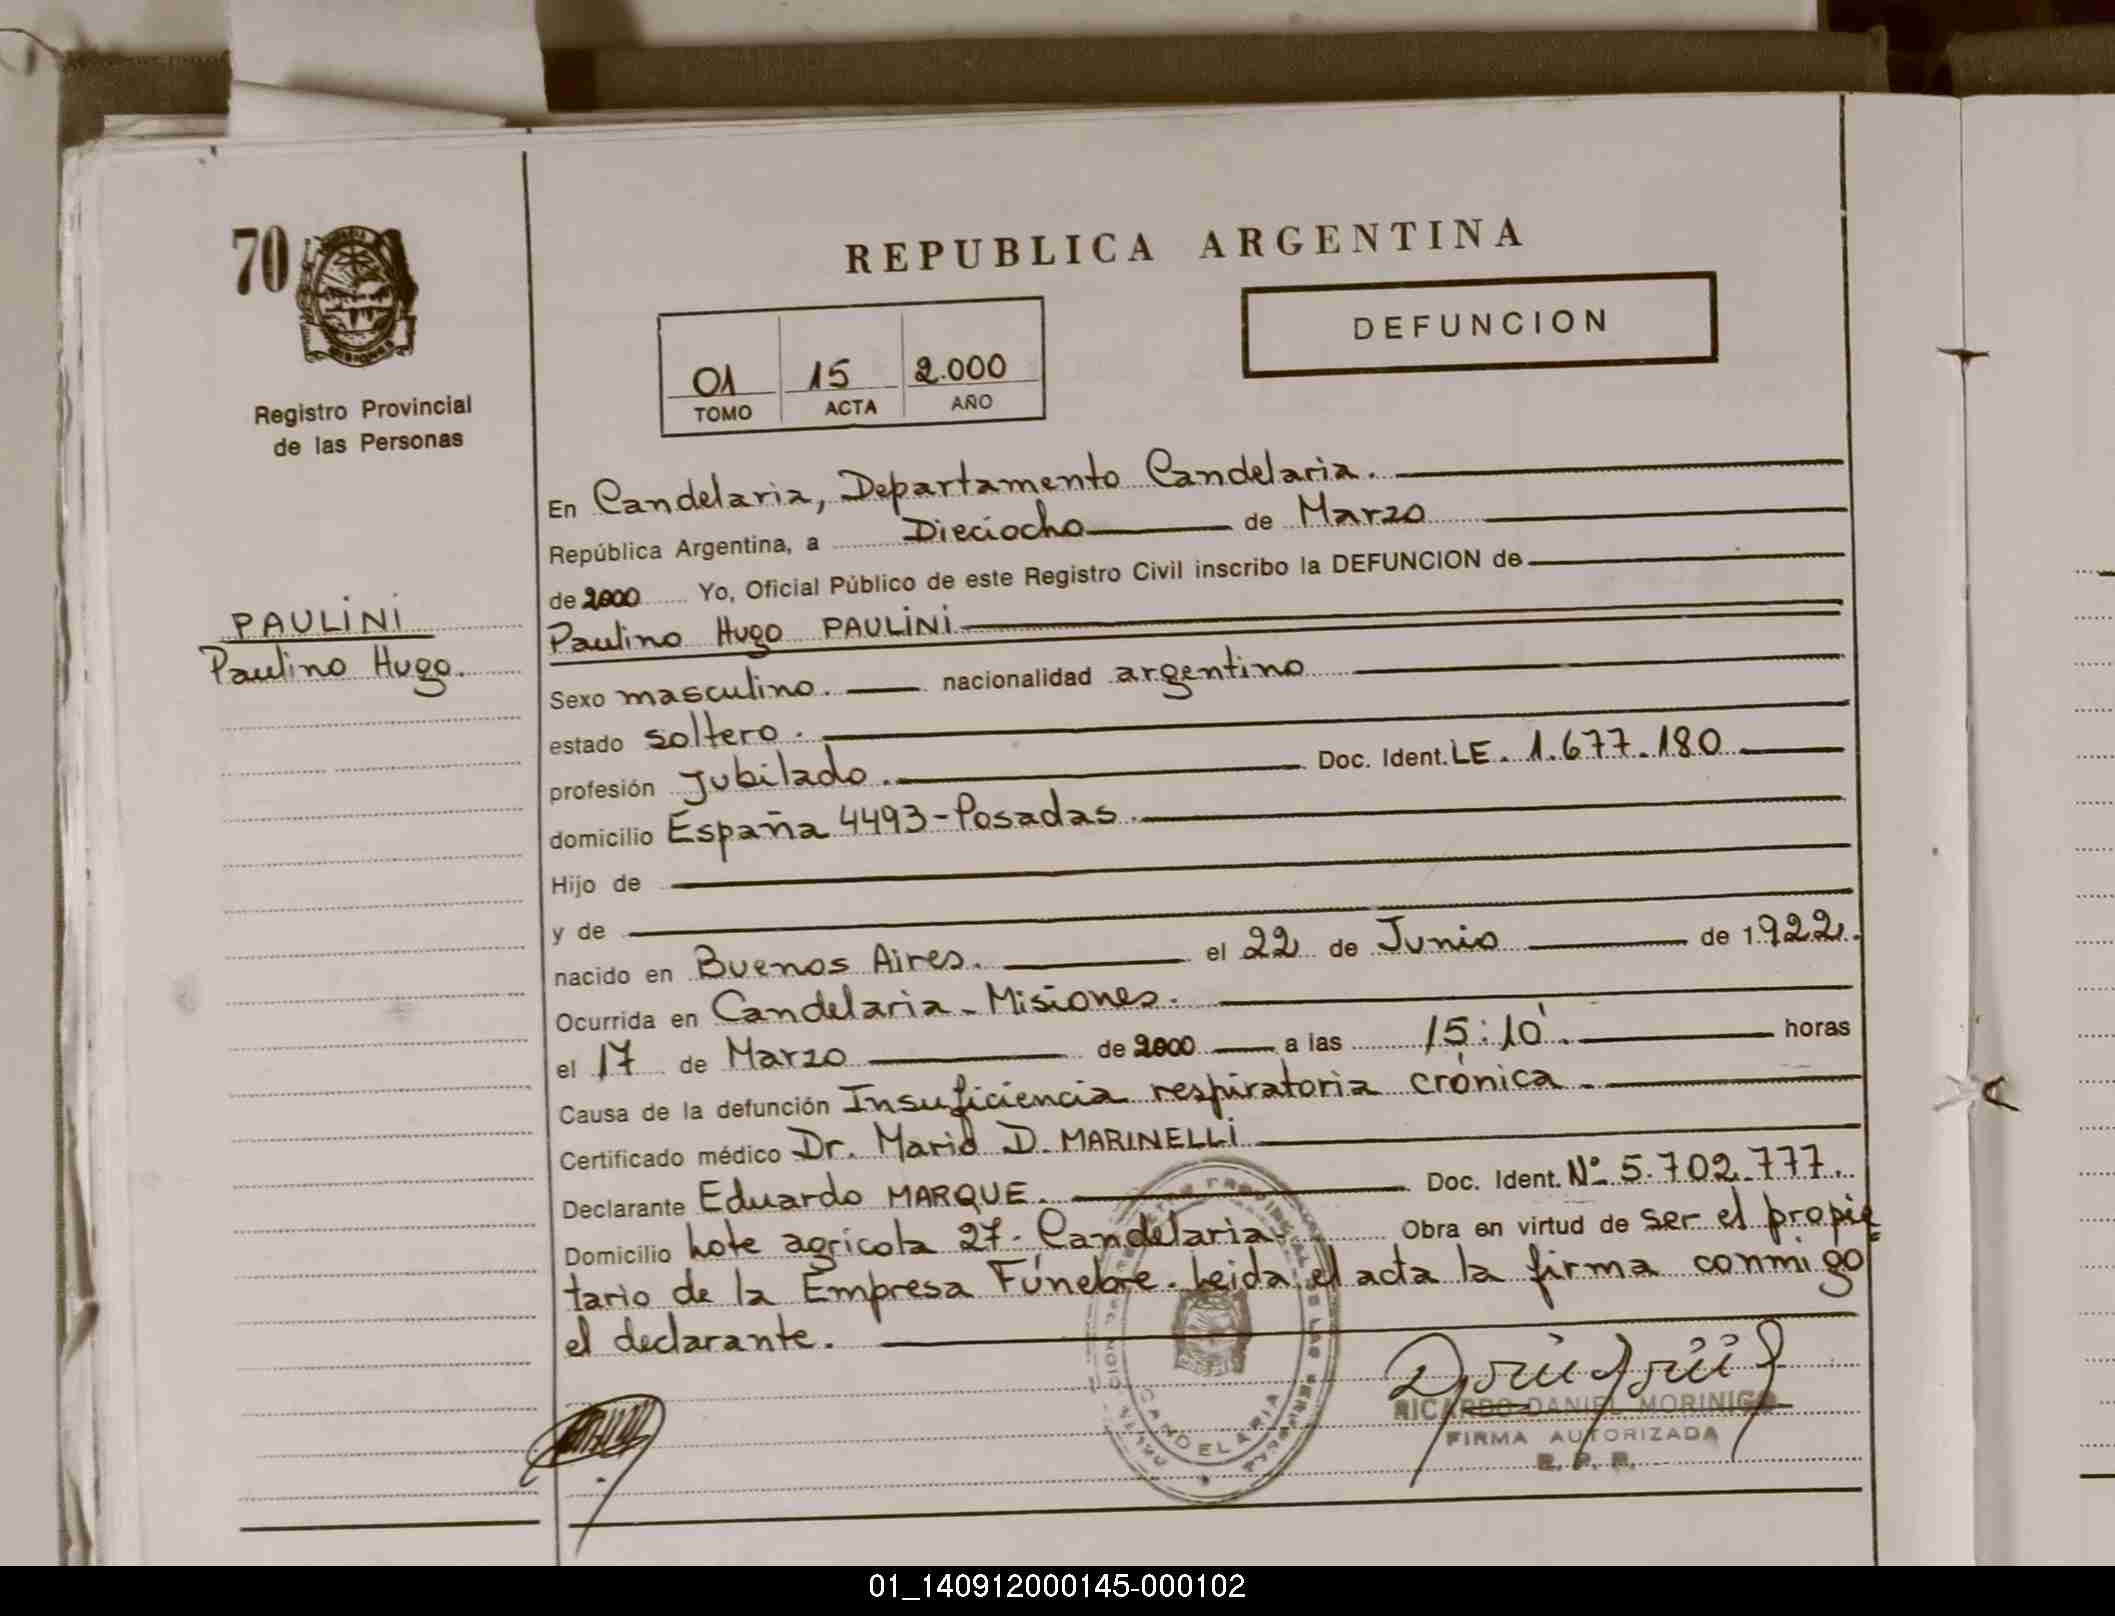 70
MISIONES
Registro Provincial
de las Personas
PAULINI
Paulino Hugo.
REPUBLICA ARGENTINA
01 15 2.000
TOMO ACTA AÑO
DEFUNCION
En Candelaria, Departamento Candelaria.
República Argentina, a Dieciocho de Marzo
de 2000 Yo, Oficial Público de este Registro Civil inscribo la DEFUNCION de
Paulino Hugo PAULINI
Sexo masculino. nacionalidad argentino
estado soltero.
profesión Jubilado. Doc. Ident. LE. 1.677.180
domicilio España 4493-Posadas.
Hijo de
y de
nacido en Buenos Aires. el 22 de Junio de 1922.
Ocurrida en Candelaria - Misiones.
el 17 de Marzo de 2000 a las 15:10'. horas
Causa de la defunción Insuficiencia respiratoria crónica.
Certificado médico Dr. Mario D. MARINELLI
Declarante Eduardo MARQUE. Doc. Ident. Nº 5.702.777.
Domicilio Lote agrícola 27. Candelaria. Obra en virtud de ser el propie
tario de la Empresa Fúnebre. Leida el acta la firma conmigo
el declarante.
CANDELARIA
RICARDO DANIEL MORINIGO
FIRMA AUTORIZADA
R. P. P.
01_140912000145-000102